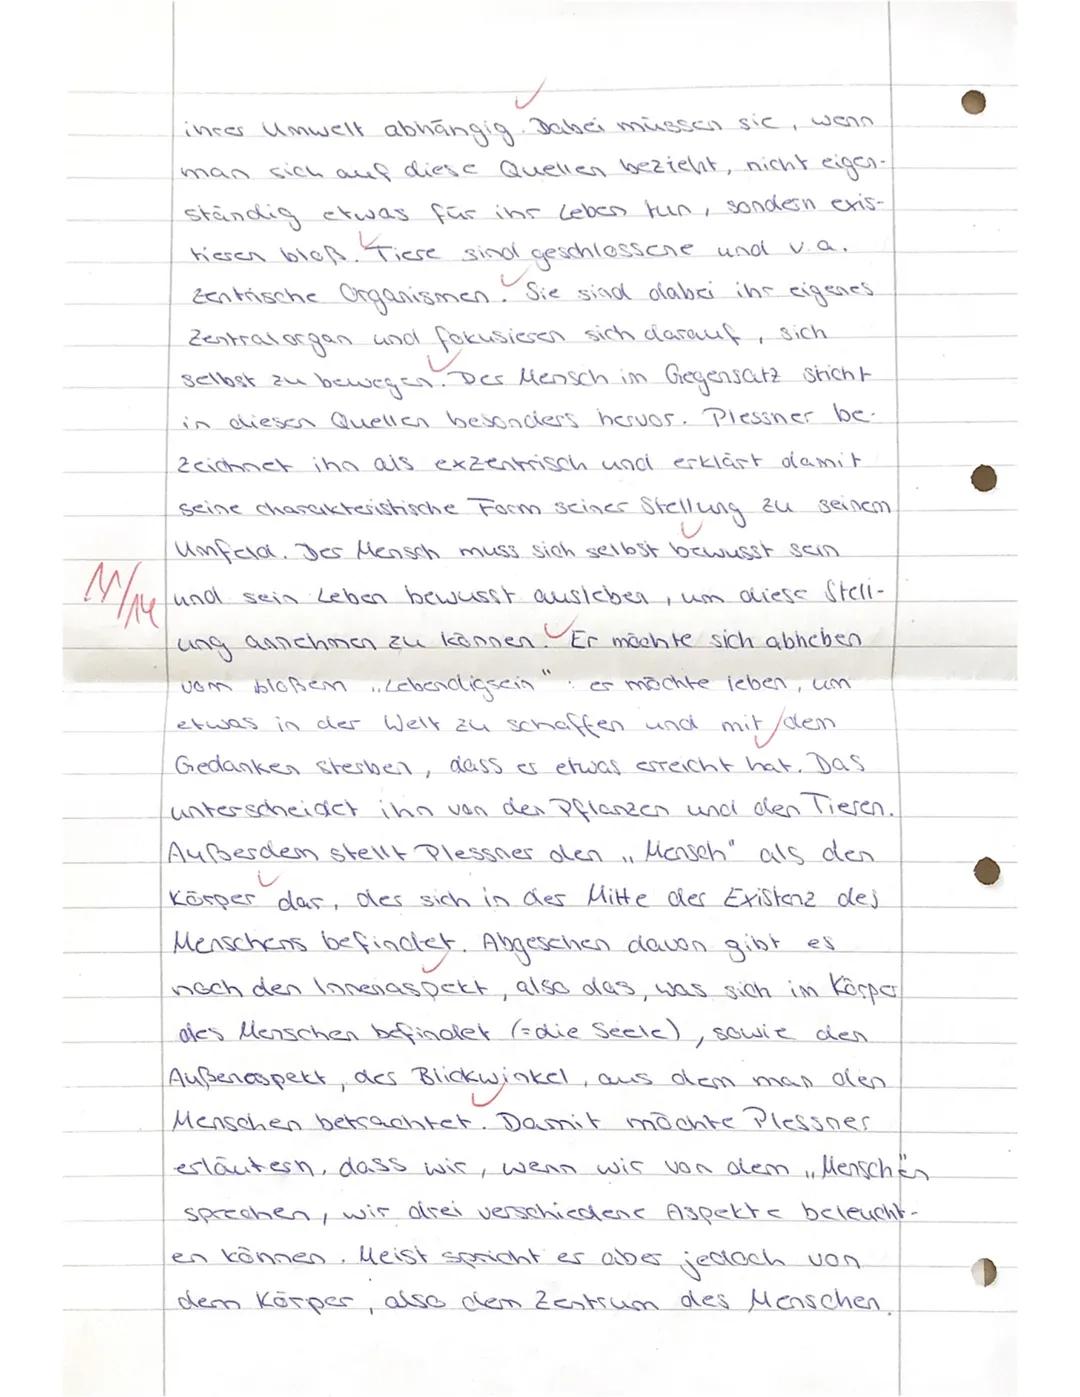 ihrer Umwelt abhängig. Dabei müssen sie, wenn
man sich auf diese Quellen bezieht, nicht eigen-
ständig etwas für ihr Leben tun, sondern exis-
tieren bloß. Tiere sind geschlossene und v.a.
zentrische Organismen. Sie sind dabei ihr eigenes
Zentralorgan und fokusieren sich darauf, sich
selbst zu bewegen. Der Mensch im Gegensatz sticht
in diesen Quellen besonders hervor. Plessner be-
zeichnet ihn als exzentrisch und erklärt damit
seine charakteristische Form seiner Stellung zu seinem
Umfeld. Der Mensch muss sich selbst bewusst sein
11/14
und sein Leben bewusst ausleben, um diese Stell-
ung annehmen zu können. Er möchte sich abheben
vom bloßem „Lebendigsein": er möchte leben, um
etwas in der Welt zu schaffen und mit den
Gedanken sterben, dass er etwas erreicht hat. Das
unterscheidet ihn von den Pflanzen und den Tieren.
Außerdem stellt Plessner den „Mensch" als den
Körper dar, der sich in der Mitte der Existenz des
Menschens befindet. Abgesehen davon gibt es
noch den Innenaspekt, also das, was sich im Körper
des Menschen befindet (=die Seele), sowie den
Außenaspekt, der Blickwinkel, aus dem man den
Menschen betrachtet. Damit möchte Plessner
erläutern, dass wir, wenn wir von dem „Menschen"
sprechen, wir drei verschiedene Aspekte beleucht-
en können. Meist spricht er aber jedoch von
dem Körper, also dem Zentrum des Menschen.